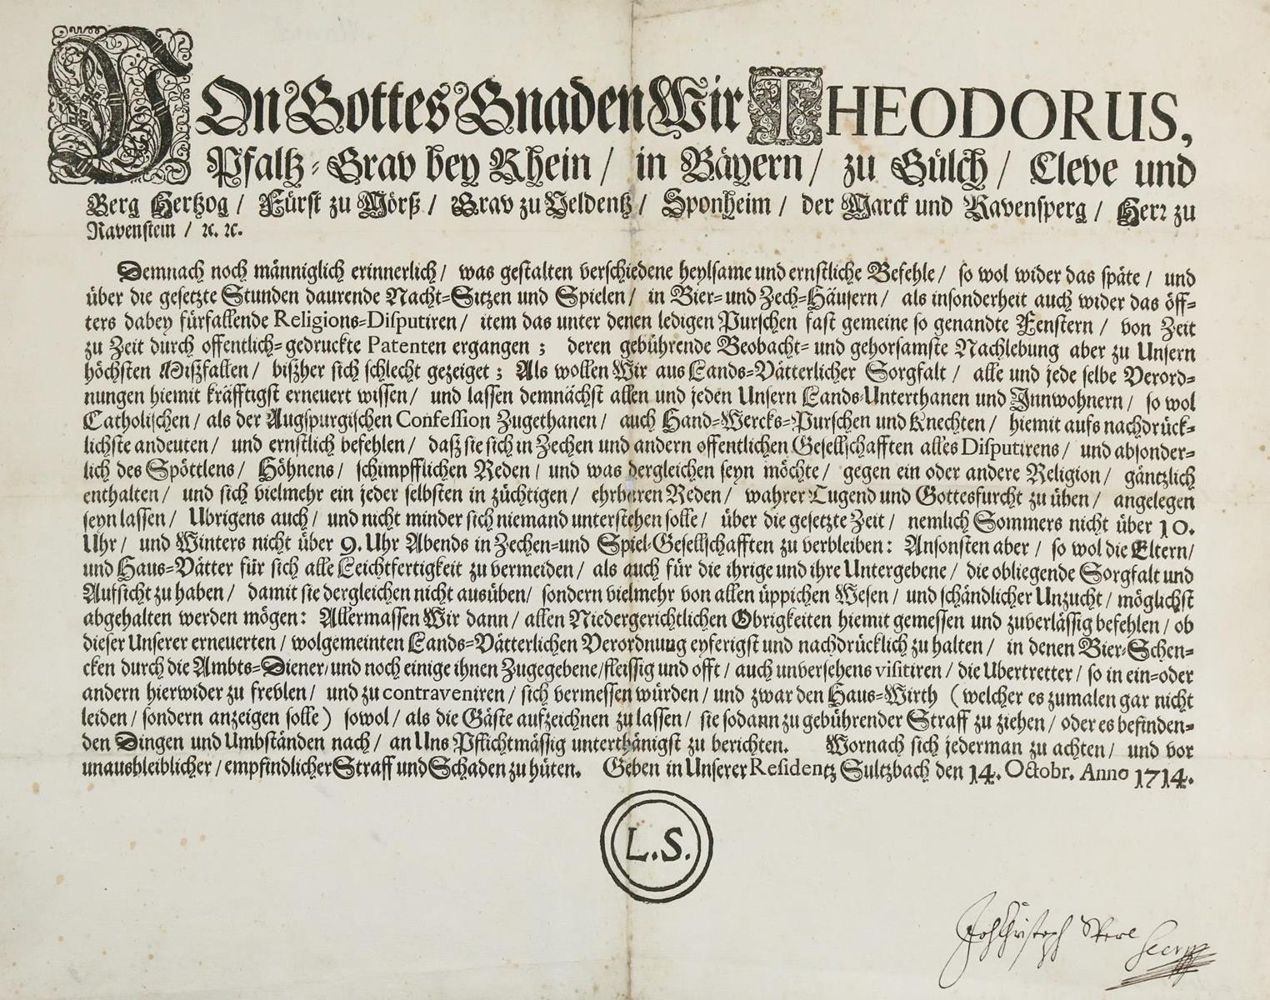 VOn Gottes Gnaden Wir THEODORUS,
Pfaltz-Grav bey Rhein / in Bäyern / zu Gülch / Cleve und
Berg Hertzog / Fürst zu Mörß / Grav zu Veldentz / Sponheim / der Marck und Ravensperg / Herr zu
Ravenstein / ꝛc. ꝛc.
Demnach noch männiglich erinnerlich / was gestalten verschiedene heylsame und ernstliche Befehle / so wol wider das späte / und
über die gesetzte Stunden daurende Nacht-Sitzen und Spielen / in Bier- und Zech-Häusern / als insonderheit auch wider das öff-
ters dabey fürfallende Religions-Disputiren / item das unter denen ledigen Purschen fast gemeine so genandte Fenstern / von Zeit
zu Zeit durch offentlich-gedruckte Patenten ergangen ; deren gebührende Beobacht- und gehorsamste Nachlebung aber zu Unsern
höchsten Mißfallen / bißher sich schlecht gezeiget ; Als wollen Wir aus Lands-Vätterlicher Sorgfalt / alle und jede selbe Verord-
nungen hiemit kräfftigst erneuert wissen / und lassen demnächst allen und jeden Unsern Lands-Unterthanen und Innwohnern / so wol
Catholischen / als der Augspurgischen Confession Zugethanen / auch Hand-Wercks-Purschen und Knechten / hiemit aufs nachdrück-
lichste andeuten / und ernstlich befehlen / daß sie sich in Zechen und andern offentlichen Gesellschafften alles Disputirens / und absonder-
lich des Spöttlens / Höhnens / schimpfflichen Reden / und was dergleichen seyn möchte / gegen ein oder andere Religion / gäntzlich
enthalten / und sich vielmehr ein jeder selbsten in züchtigen / ehrbaren Reden / wahrer Tugend und Gottesfurcht zu üben / angelegen
seyn lassen / Ubrigens auch / und nicht minder sich niemand unterstehen solle / über die gesetzte Zeit / nemlich Sommers nicht über 10.
Uhr / und Winters nicht über 9. Uhr Abends in Zechen-und Spiel-Gesellschafften zu verbleiben: Ansonsten aber / so wol die Eltern /
und Haus-Vätter für sich alle Leichtfertigkeit zu vermeiden / als auch für die ihrige und ihre Untergebene / die obliegende Sorgfalt und
Aufsicht zu haben / damit sie dergleichen nicht ausüben / sondern vielmehr von allen üppichen Wesen / und schändlicher Unzucht / möglichst
abgehalten werden mögen: Allermassen Wir dann / allen Niedergerichtlichen Obrigkeiten hiemit gemessen und zuverlässig befehlen / ob
dieser Unserer erneuerten / wolgemeinten Lands-Vätterlichen Verordnung eyferigst und nachdrücklich zu halten / in denen Bier-Schen-
cken durch die Ambts-Diener / und noch einige ihnen Zugegebene / fleissig und offt / auch unversehens visitiren / die Ubertretter / so in ein-oder
andern hierwider zu frevlen / und zu contraveniren / sich vermessen würden / und zwar den Haus-Wirth (welcher es zumalen gar nicht
leiden / sondern anzeigen solle) sowol / als die Gäste aufzeichnen zu lassen / sie sodann zu gebührender Straff zu ziehen / oder es befinden-
den Dingen und Umbständen nach / an Uns Pflichtmässig unterthänigst zu berichten. Wornach sich jederman zu achten / und vor
unausbleiblicher / empfindlicher Straff und Schaden zu hüten. Geben in Unserer Residentz Sultzbach den 14. Octobr. Anno 1714.
L.S.
Joh Christoph